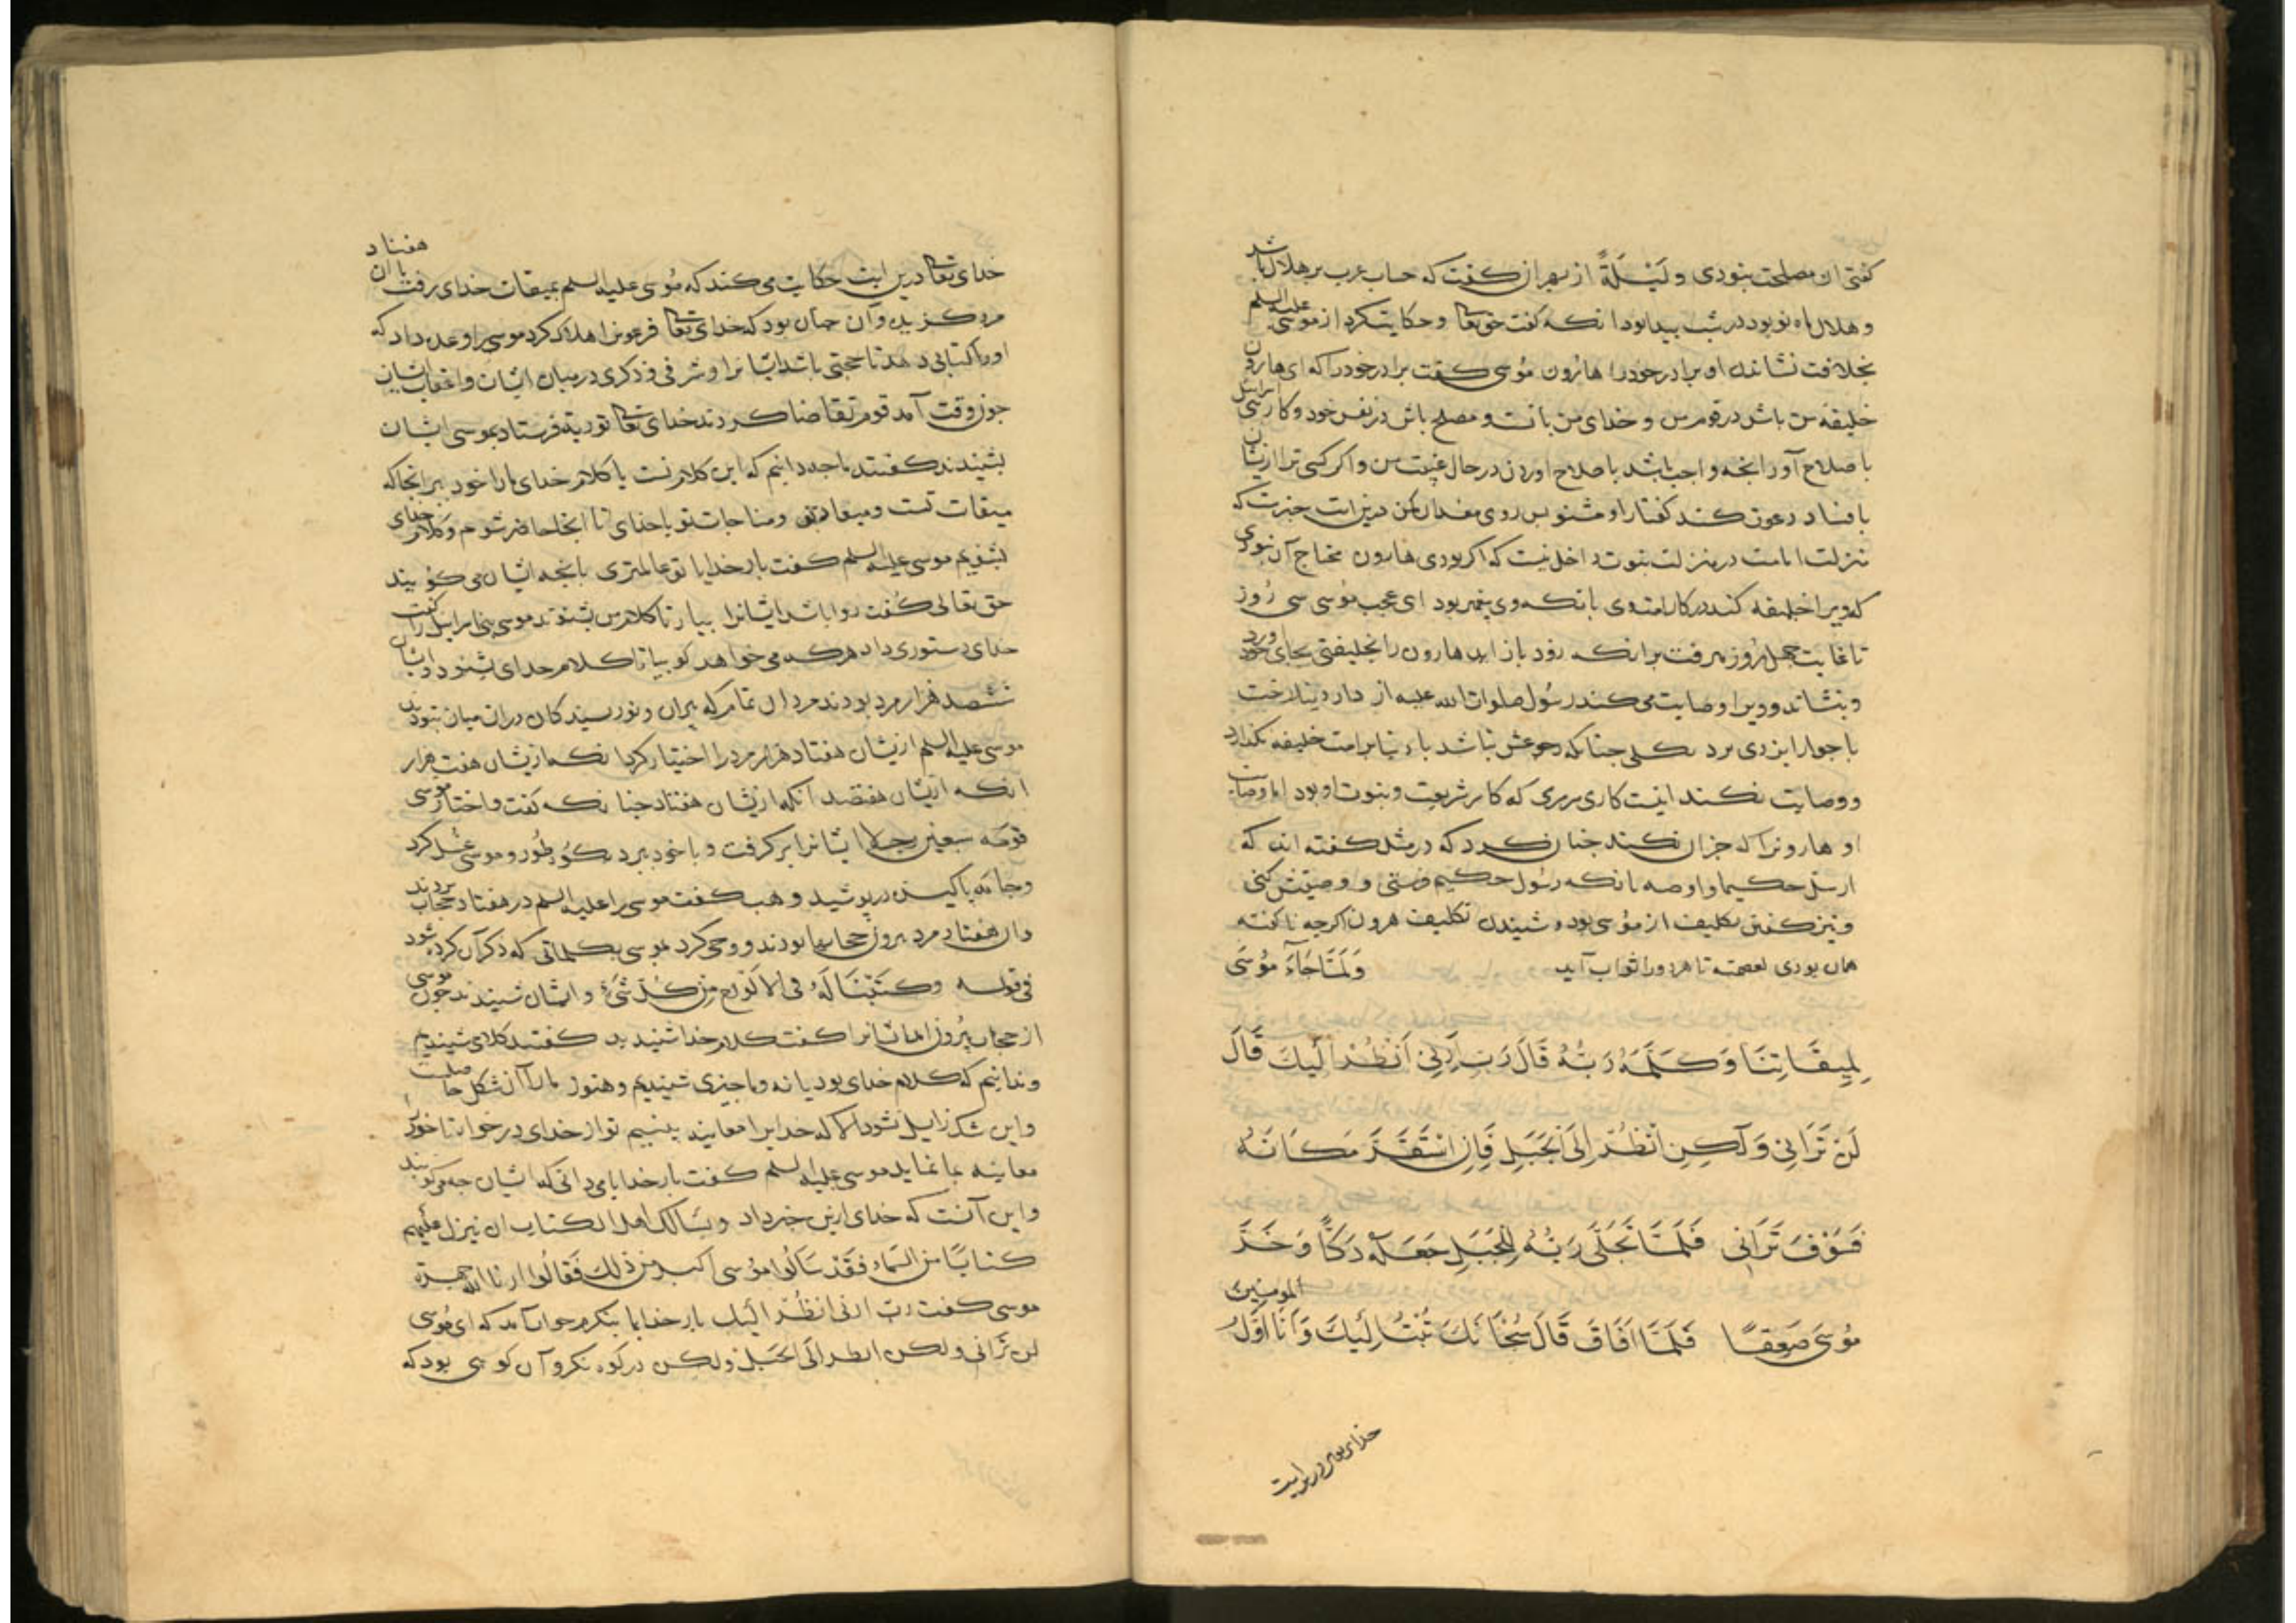 کفتی ان مصلحت نبودی و لَیْلَةً از بهر ان کفت که حساب عرب بر هلال باشد
و هلال ماه نو بود در شب پیدا بود انکه کفت حق تعا و حکایت کرد از موسی علیه السلم
بخلافت نشاندن او برادر خود را هارون موسی کفت برادر خود را که ای هارون
خلیفه من باش در قوم من و خدای من بانست و مصلح باش در نفس خود و کار بنی اسرایل
با صلاح آور انجه واجب باشد با صلاح اوردن در حال غیبت من و اکر کسی ترا ازیشان
با فساد دعوت کند کفتار او مشنو بس روی مفسدان مکن درین ایت خبرست که
منزلت امامت در منزلت نبوت داخل نیست که اکر بودی هارون محتاج آن نبودی
که ویرا خلیفه کند در کار امت وی بانکه وی پیغمبر بود ای عجب موسی سی روز
تا غایت چهل روز میرفت برانکه زود باز اید هارون را بخلیفتی بجای خود
و بنشاند و ویرا وصایت می کند رسول صلوات الله علیه از دار دنیا رخت
با جوار ایزدی برد بکلی چنانکه رجوعش نباشد با دنیا بر امت خلیفه نکذارد
و وصایت نکند اینت کاری سرسری که کار شریعت و نبوت او بود اما وصایت
او هارونرا که جز ان نکند جنان کرد که در مثل کفته اند که
ارسل حکیما و اوصه بانکه رسول حکیم فرستی و وصیتش کنی
و نیز کفتن تکلیف از موسی بود و شنیدن تکلیف هرون اکرجه ناکفته
همان بودی لعصمته تا هر دو را ثواب آید وَلَمَّا جَاءَ مُوسَى
لِمِيقَاتِنَا وَكَلَّمَهُ رَبُّهُ قَالَ رَبِّ أَرِنِي أَنْظُرْ إِلَيْكَ قَالَ
لَنْ تَرَانِي وَلَكِنِ انْظُرْ إِلَى الْجَبَلِ فَإِنِ اسْتَقَرَّ مَكَانَهُ
فَسَوْفَ تَرَانِي فَلَمَّا تَجَلَّى رَبُّهُ لِلْجَبَلِ جَعَلَهُ دَكًّا وَخَرَّ
مُوسَى صَعِقًا فَلَمَّا أَفَاقَ قَالَ سُبْحَانَكَ تُبْتُ إِلَيْكَ وَأَنَا أَوَّلُ المومنین
خدای تعا در این ایت
خدای تعا درین ایت حکایت می کند که موسی علیه السلم بمیقات خدای رفت با ان هفتاد
مرد کزیده و آن جنان بود که خدای تعا فرعونرا هلاک کرد موسی را وعده داد که
او را کتابی دهد تا حجتی باشد ایشانرا و شرفی و ذکری در میان ایشان و اعقاب ایشان
جون وقت آمد قوم تقاضا کردند خدای تعا توریة فرستاد بموسی ایشان
بشنیدند کفتند ما جه دانیم که این کلام تست یا کلام خدای ما را خود ببر انجا که
میقات تست و میعاد تو و مناجات تو با خدای تا انجا حاضر شویم و کلام خدای
بشنویم موسی علیه السلم کفت بار خدایا تو عالمتری بانجه ایشان می کویند
حق تعالی کفت روا باشد ایشانرا بیار تا کلام من بشنوند موسی بنی اسرایل را کفت
خدای دستوری داد هر که می خواهد کو بیا تا کلام خدای بشنود و ایشان
ششصد هزار مرد بودند مردان تمام که پیران و نورسیدکان دران میان نبودند
موسی علیه السلم ازیشان هفتاد هزار مرد را اختیار کرد انکه ازیشان هفت هزار
انکه ازیشان هفتصد آنکه ازیشان هفتاد جنانکه کفت و اختار موسی
قومه سبعین رجلا ایشانرا بر کرفت و با خود ببرد بکوه طور و موسی غسل کرد
و جامه پاکیزه در پوشید و هب کفت موسی را علیه السلم در هفتاد حجاب بردند
و ان هفتاد مرد بیرون حجابها بودند و وحی کرد بموسی بکلماتی که ذکر آن کرده شود
فی قوله وکتبنا له فی الالواح من کل شیء و ایشان شنیدند جون موسی
از حجاب بیرون امد ایشانرا کفت کلام خدا شنیدید کفتند کلامی شنیدیم
و ندانیم که کلام خدای بود یا نه و ما جیزی شنیدیم و هنوز ما را آن شکل حاصلست
و این شک زایل نشود الا که خدایرا معاینه ببینیم تو از خدای در خواه تا خود را
معاینه بما نماید موسی علیه السلم کفت بار خدایا می دانی که ایشان جه می کویند
و این آنست که خدای ازین خبر داد و یسالک اهل الکتاب ان تنزل علیهم
کتابا من السماء فقد سالوا موسی اکبر من ذلک فقالوا ارنا الله جهرة
موسی کفت رب ارنی انظر الیک بار خدایا بنکرم جواب آمد که ای موسی
لن ترانی ولکن انظر الی الجبل ولکن در کوه نکر و آن کوهی بود که